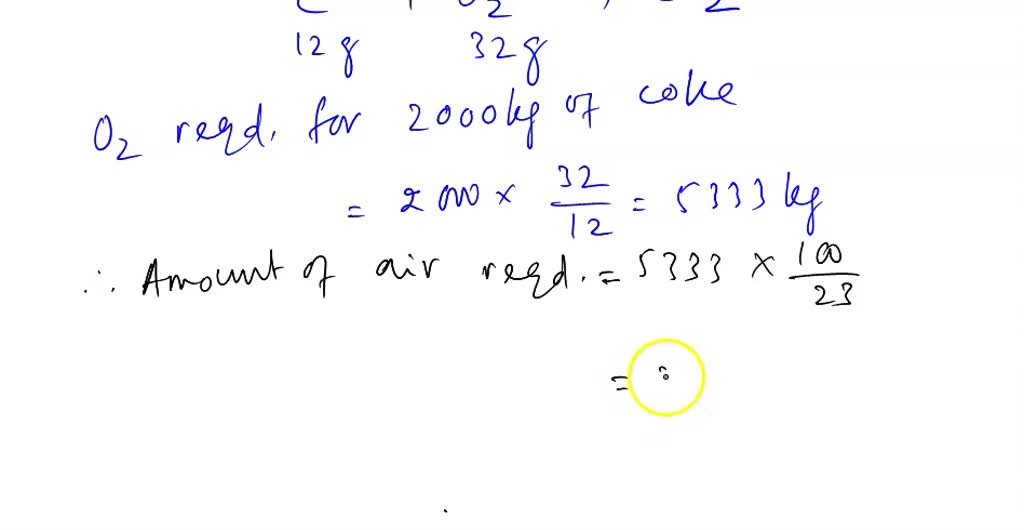 12g 32g
O2 reqd. for 2000kg of coke
= 2000 × 32/12 = 5333 kg
∴ Amount of air reqd. = 5333 × 100/23
=